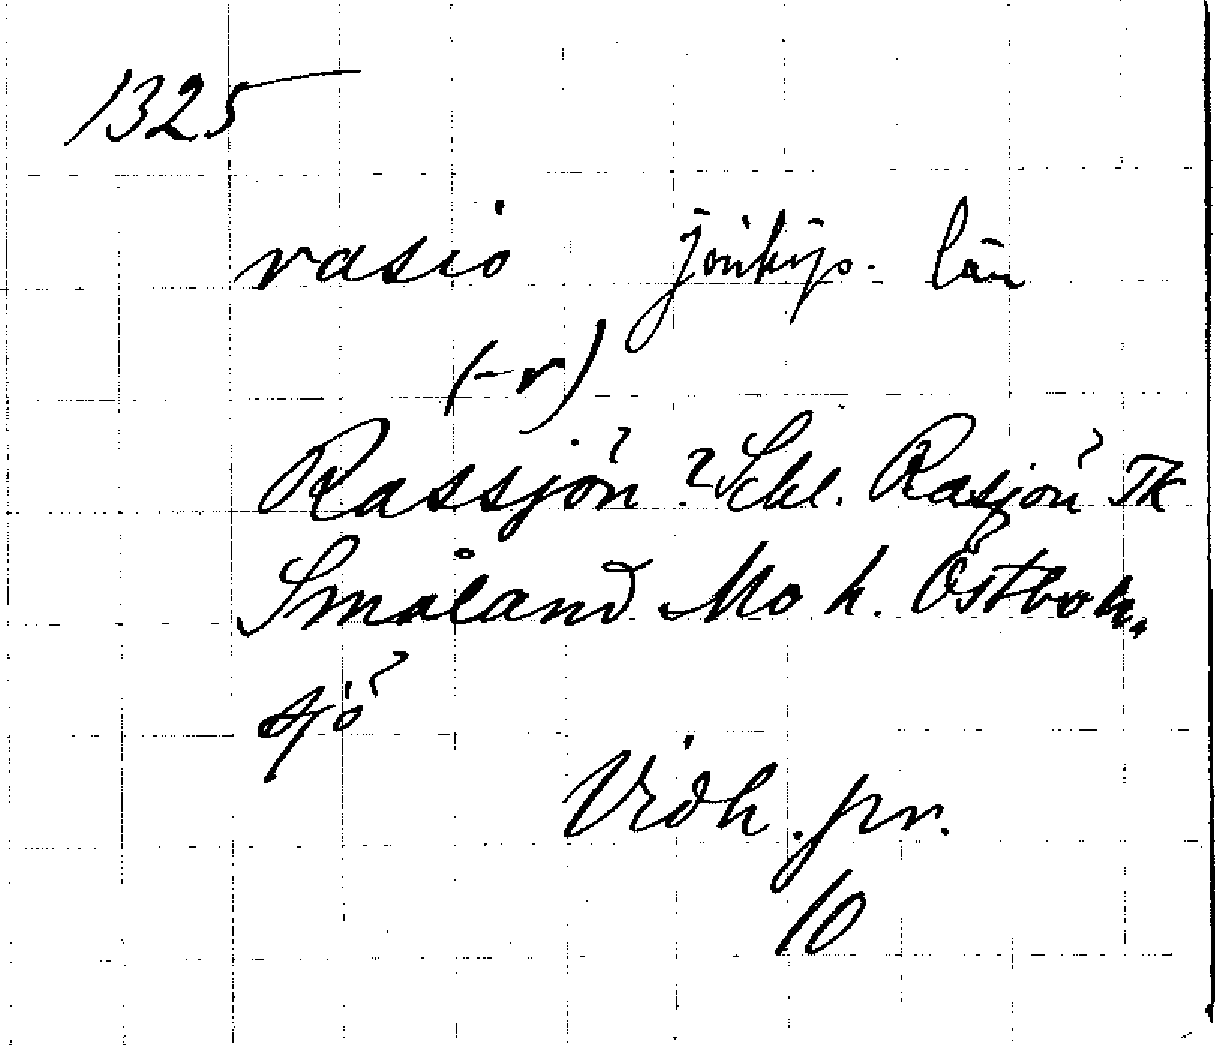 1325
rasio Jönköp. län
(-r)
Rassjön? Schl. Rasjön TK
Småland Mo h. Östbo h.
sjö
Vidh. pr.
10